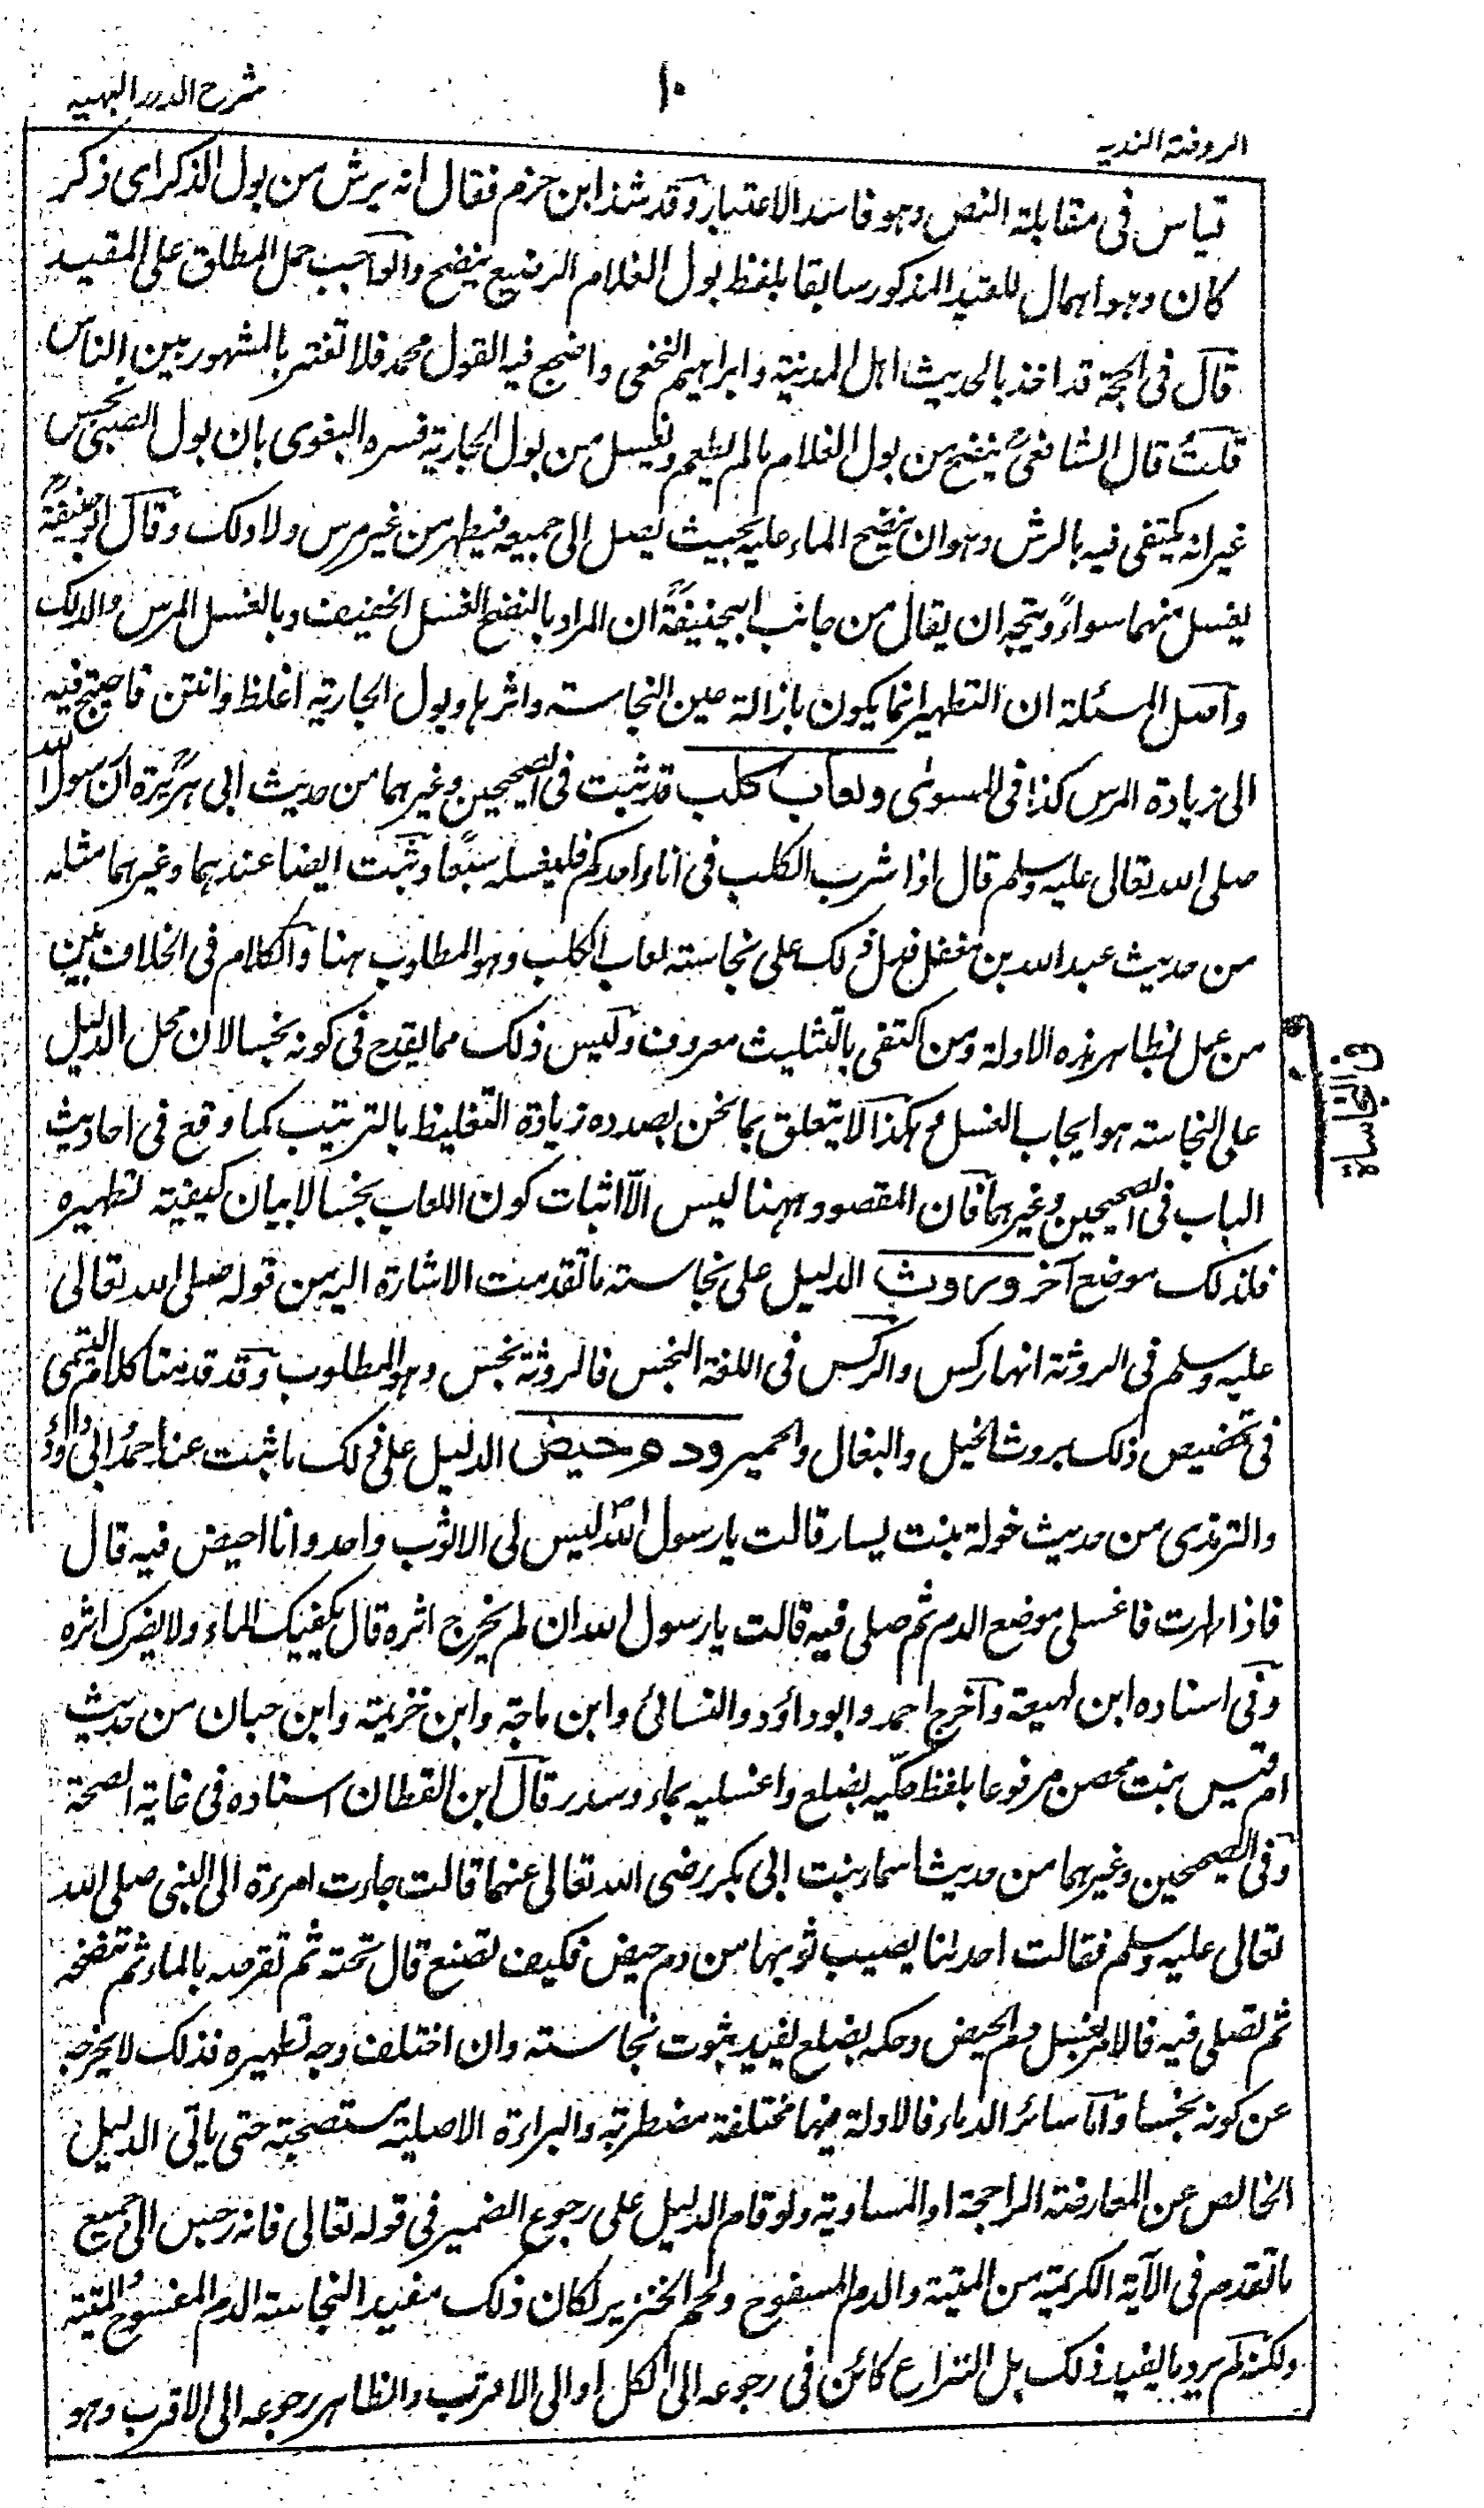 شرح الدرر البهية
١٠
الروضة الندية
قياس فى مقابلة النص وهو فاسد الاعتبار وقد شذ ابن حزم فقال انه يرش من بول الذكر اى ذكر
كان وهو اهمال للقيد المذكور سابقا بلفظ بول الغلام الرضيع ينضح والواجب حمل المطلق على المقيد
قال فى الحجة قد اخذ بالحديث اهل المدينة وابراهيم النخعى واضجع فيه القول محمد فلا تغتر بالمشهور بين الناس
قلت قال الشافعى ينضح من بول الغلام ما لم يطعم ويغسل من بول الجارية فسره البغوى بان بول الصبى نجس
غير انه يكتفى فيه بالرش وهو ان ينضح الماء عليه بحيث يصل الى جميعه فيطهر من غير مرس ولا دلك وقال ابو حنيفة
يغسل منهما سواء ويتجه ان يقال من جانب ابيحنيفة ان المراد بالنضح الغسل الخفيف وبالغسل المرس والدلك
واصل المسئلة ان التطهير انما يكون بازالة عين النجاسة واثرها وبول الجارية اغلظ وانتن فاحتيج فيه
الى زيادة المرس كذا فى المسوى ولعاب كلب قد ثبت فى الصحيحين وغيرهما من حديث ابى هريرة ان رسول الله
صلى الله تعالى عليه وسلم قال اذا شرب الكلب فى اناء احدكم فليغسله سبعا وثبت ايضا عندهما وغيرهما مثله
من حديث عبد الله بن مغفل فدل ذلك على نجاسة لعاب الكلب وهو المطلوب هنا والكلام فى الخلاف بين
من عمل بظاهر هذه الادلة ومن اكتفى بالتثليث معروف وليس ذلك مما يقدح فى كونه نجسا لان محل الدليل
على النجاسة هو ايجاب الغسل وهكذا لا يتعلق بما نحن بصدده زيادة التغليظ بالترتيب كما وقع فى احاديث
الباب فى الصحيحين وغيرهما فان المقصود ههنا ليس الا اثبات كون اللعاب نجسا لا بيان كيفية تطهيره
فلذلك موضع آخر وروث الدليل على نجاسته ما تقدمت الاشارة اليه من قوله صلى الله تعالى
عليه وسلم فى الروثة انها ركس والركس فى اللغة النجس فالروثة نجس وهو المطلوب وقد قدمنا كلام التيمى
فى تخصيص ذلك بروث الخيل والبغال والحمير ودم حيض الدليل على ذلك ما ثبت عند احمد وابى داود
والترمذى من حديث خولة بنت يسار قالت يا رسول الله ليس لى الا ثوب واحد وانا احيض فيه قال
فاذا طهرت فاغسلى موضع الدم ثم صلى فيه قالت يا رسول الله ان لم يخرج اثره قال يكفيك الماء ولا يضرك اثره
وفى اسناده ابن لهيعة واخرج احمد وابو داود والنسائى وابن ماجة وابن خزيمة وابن حبان من حديث
ام قيس بنت محصن مرفوعا بلفظ حكيه بضلع واغسليه بماء وسدر قال ابن القطان اسناده فى غاية الصحة
وفى الصحيحين وغيرهما من حديث اسماء بنت ابى بكر رضى الله تعالى عنهما قالت جاءت امرءة الى النبى صلى الله
تعالى عليه وسلم فقالت احدنا يصيب ثوبها من دم حيض فكيف تصنع قال تحته ثم تقرصه بالماء ثم تنضحه
ثم تصلى فيه فالامر بغسل دم الحيض وحكه بضلع يفيد ثبوت نجاسته وان اختلف وجه تطهيره فذلك لا يخرجه
عن كونه نجسا واما سائر الدماء فالادلة فيهما مختلفة مضطربة والبراءة الاصلية مستصحبة حتى ياتى الدليل
الخالص عن المعارضة الراجحة او المساوية ولو قام الدليل على رجوع الضمير فى قوله تعالى فانه رجس الى جميع
ما تقدم فى الآية الكريمة من الميتة والدم المسفوح ولحم الخنزير لكان ذلك مفيدا لنجاسة الدم المسفوح والميتة
ولكنه لم يرد ما يفيد ذلك بل النزاع كائن فى رجوعه الى الكل او الى الاقرب والظاهر رجوعه الى الاقرب وهو
ف النجاساة